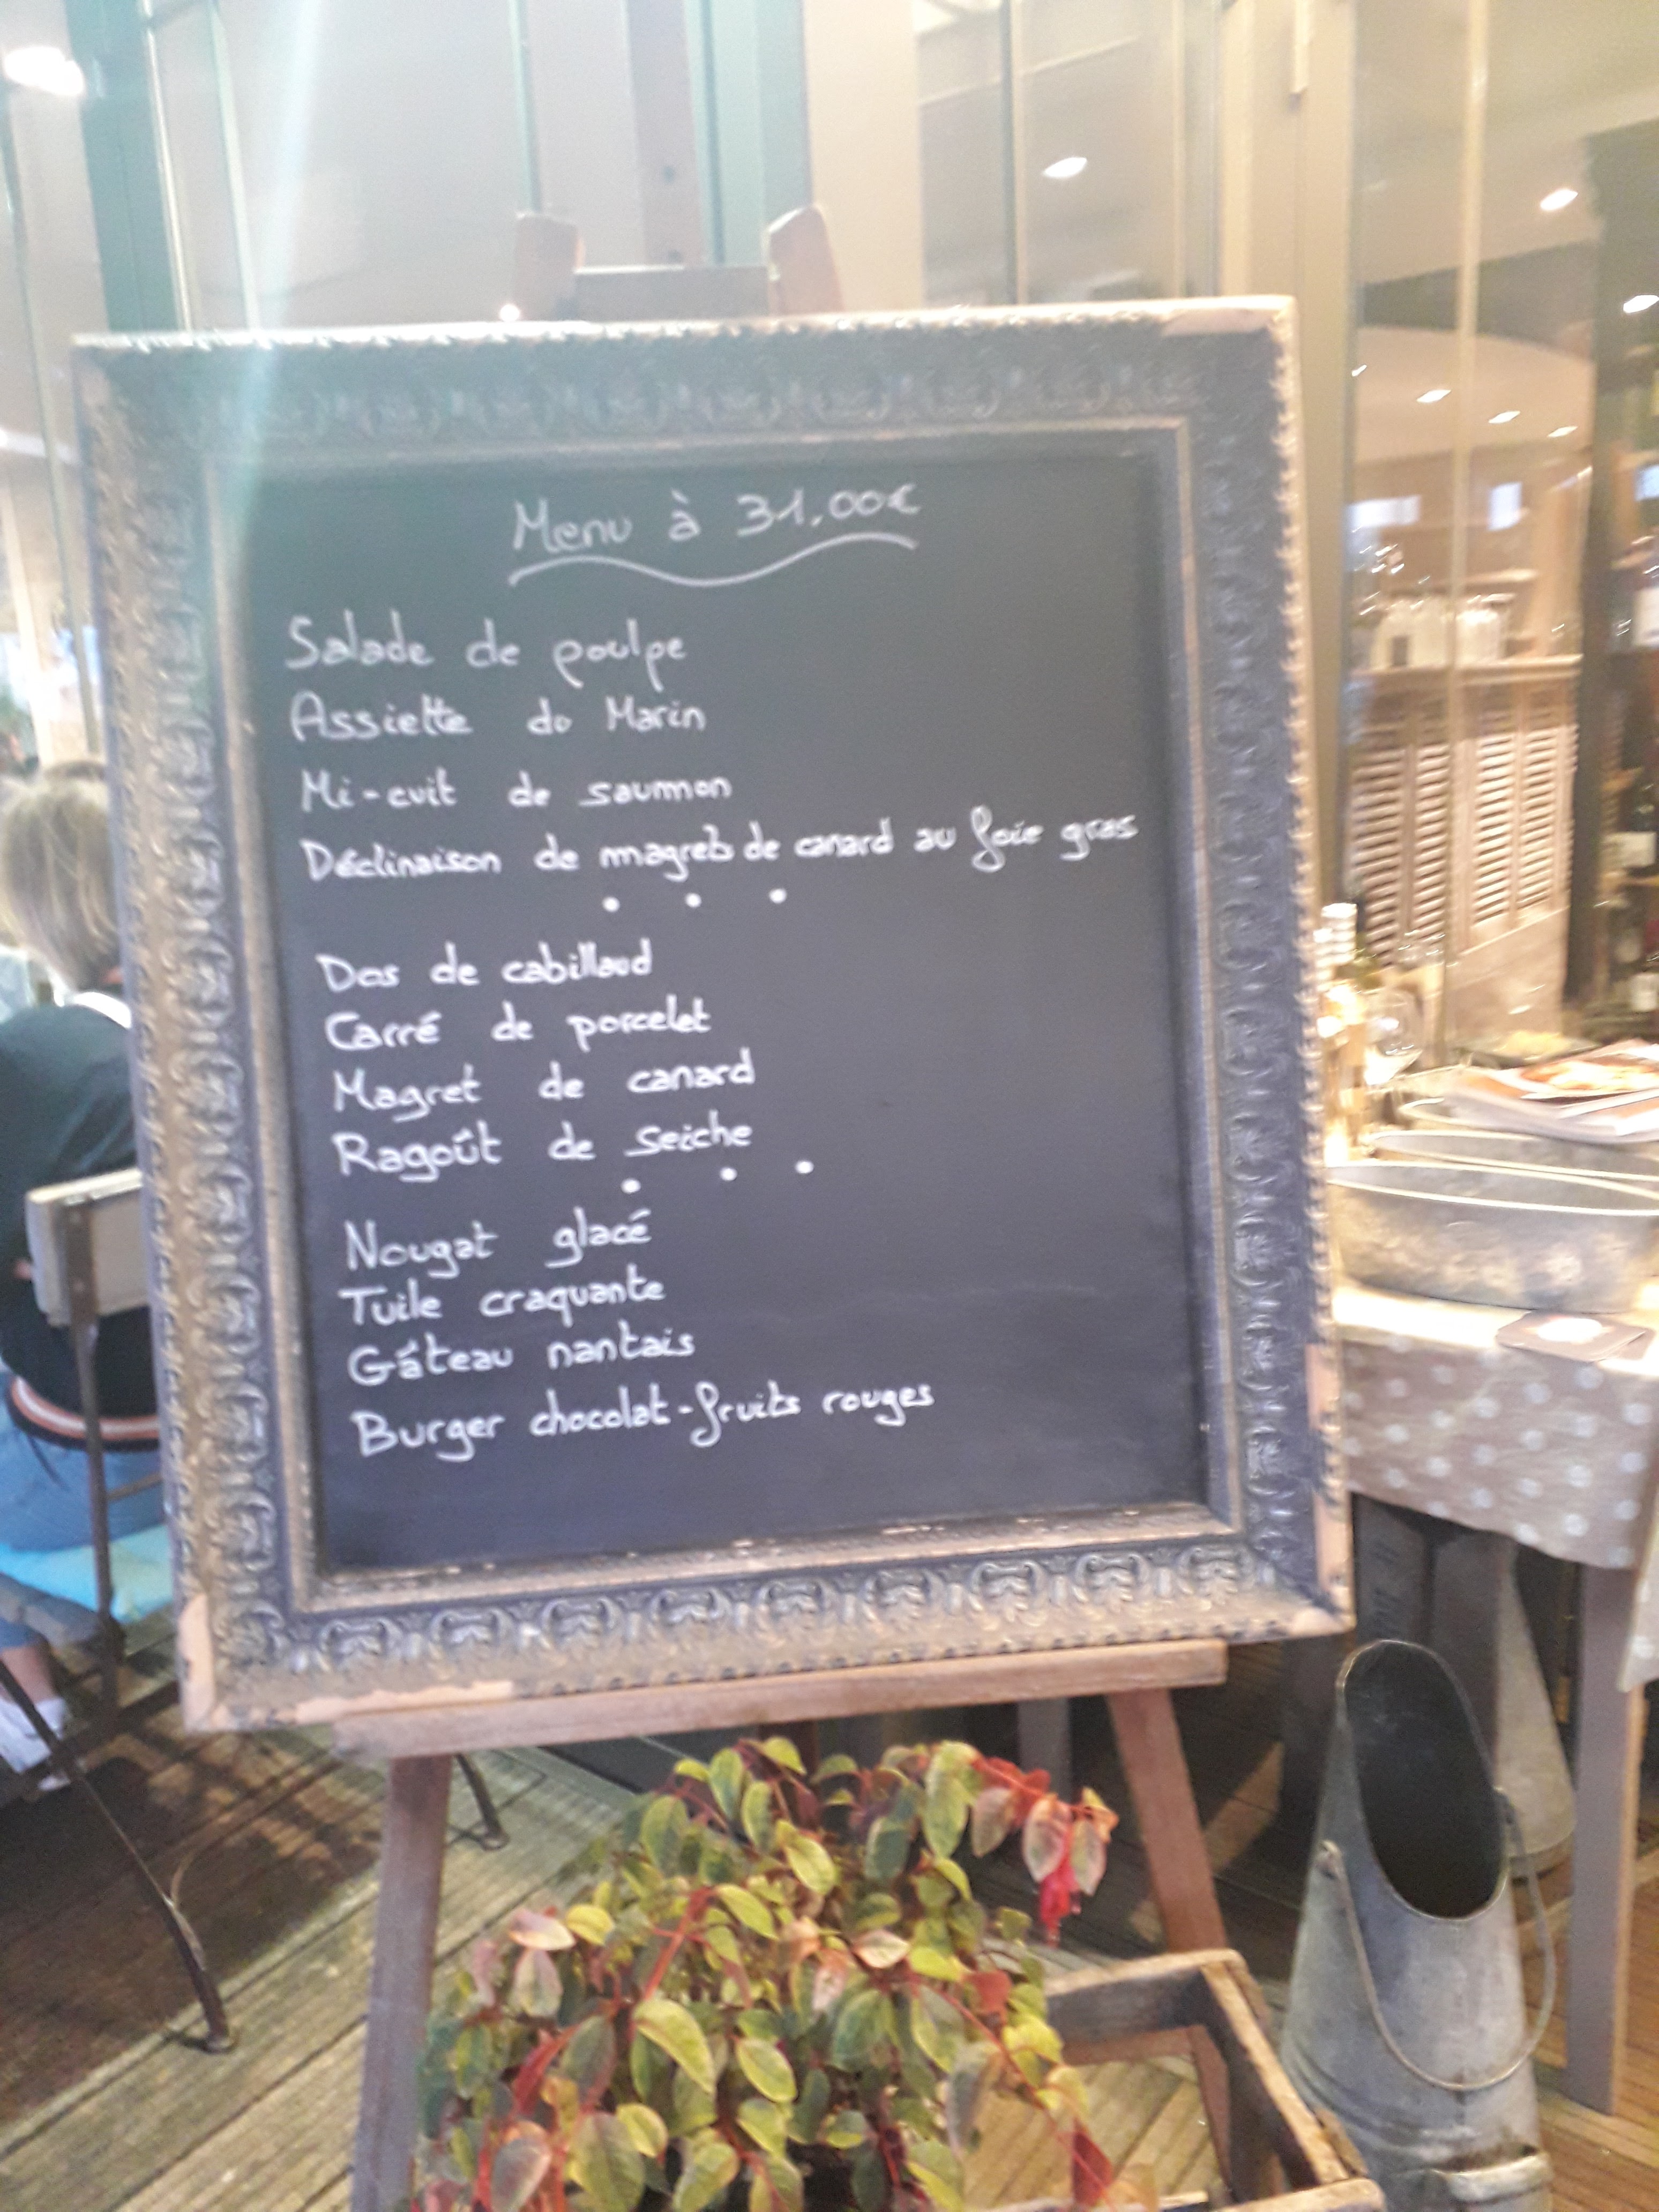 Menu à 31.00€
Salade de poulpe
Assiette du Marin
Mi-cuit de saumon
Déclinaison de magrets de canard au foie gras
Dos de cabillaud
Carré de porcelet
Magret de canard
Ragoût de seiche
Nougat glacé
Tuile craquante
Gâteau nantais
Burger chocolat-fruits rouges